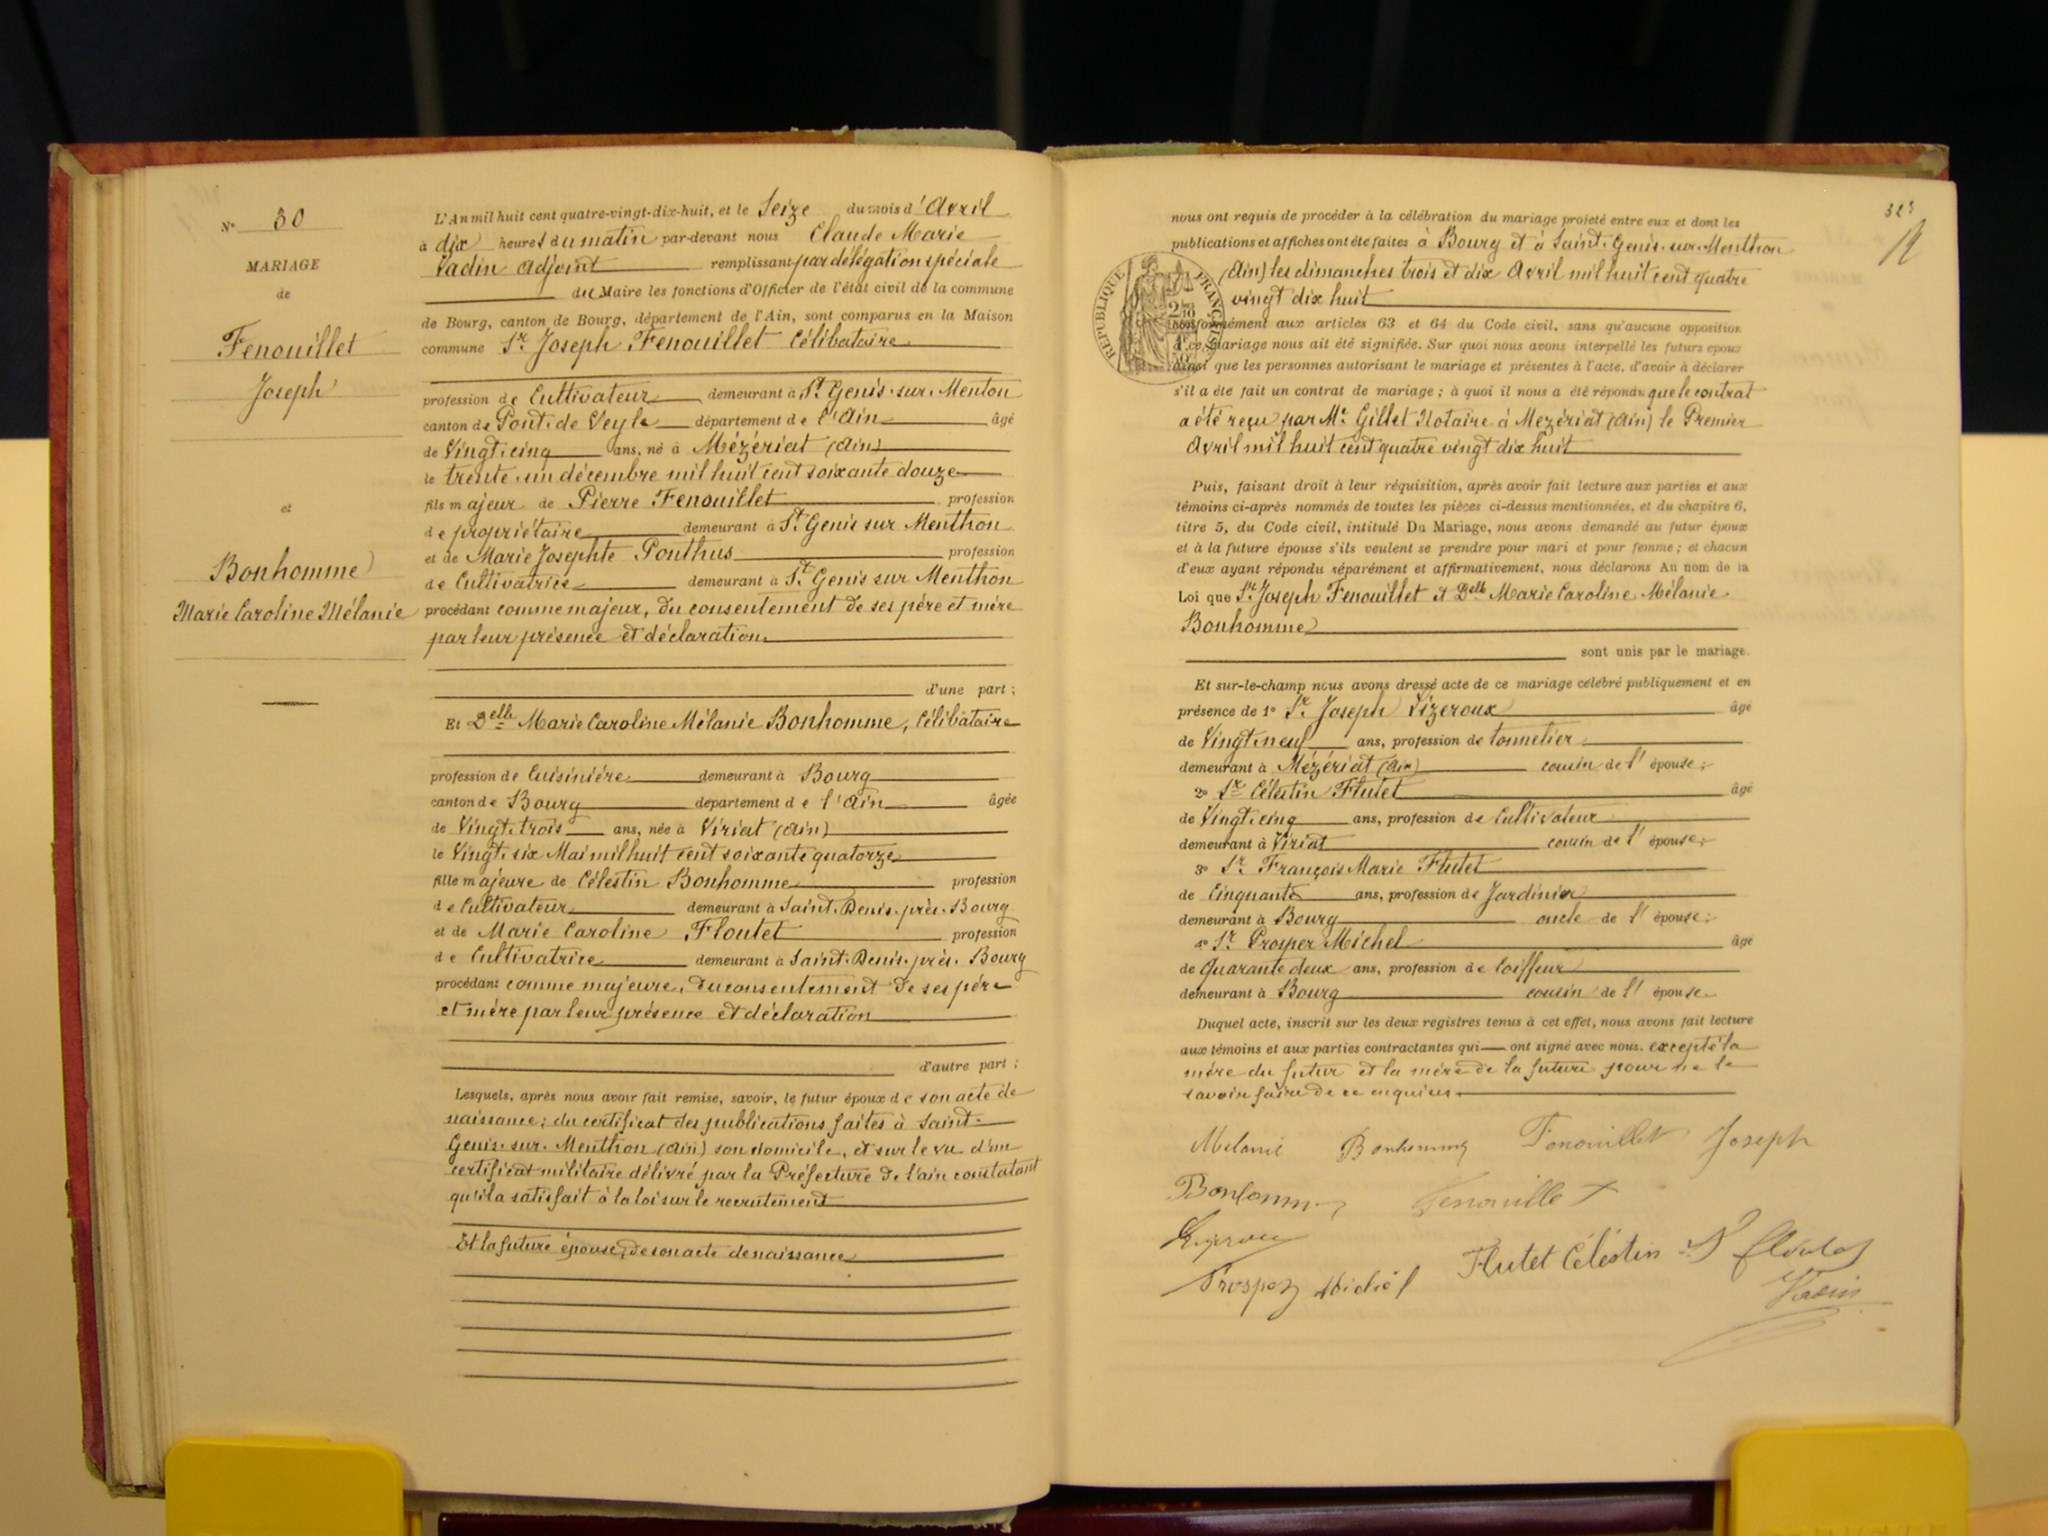 N° 30
MARIAGE
de
Fenouillet
Joseph
et
Bonhomme
Marie Caroline Mélanie
L'An mil huit cent quatre-vingt-dix-huit, et le Seize du mois d'Avril
à dix heures du matin par-devant nous Claude Marie
Vadin Adjoint remplissant par délégation spéciale
du Maire les fonctions d'Officier de l'état civil de la commune
de Bourg, canton de Bourg, département de l'Ain, sont comparus en la Maison
commune Sr. Joseph Fenouillet Célibataire
profession de Cultivateur demeurant à St. Genis-sur-Menton
canton de Pont-de Veyle département de l'Ain âgé
de Vingt-cinq ans, né à Mézériat (Ain)
le trente-un décembre mil huit cent soixante douze
fils majeur de Pierre Fenouillet profession
de propriétaire demeurant à St. Genis sur Menthon
et de Marie Josephte Ponthus profession
de Cultivatrice demeurant à St. Genis sur Menthon
procédant comme majeur, du consentement de ses père et mère
par leur présence et déclaration
d'une part ;
Et Delle Marie Caroline Mélanie Bonhomme, Célibataire
profession de Cuisinière demeurant à Bourg
canton de Bourg département de l'Ain âgée
de Vingt-trois ans, née à Viriat (Ain)
le Vingt-six Mai mil huit cent soixante quatorze
fille majeure de Célestin Bonhomme profession
de Cultivateur demeurant à Saint-Denis-près-Bourg
et de Marie Caroline Floutet profession
de Cultivatrice demeurant à Saint-Denis-près-Bourg
procédant comme majeure, du consentement de ses père
et mère par leur présence et déclaration
d'autre part ;
Lesquels, après nous avoir fait remise, savoir, le futur époux de son acte de
naissance ; du certificat des publications faites à Saint-
Genis-sur-Menthon (Ain) son domicile, et sur le vu d'un
certificat militaire délivré par la Préfecture de l'ain constatant
qu'il a satisfait à la loi sur le recrutement
Et la future épouse, de son acte de naissance
RÉPUBLIQUE FRANÇAISE
nous ont requis de procéder à la célébration du mariage projeté entre eux et dont les
publications et affiches ont été faites à Bourg et à Saint-Genis-sur-Menthon
(Ain) les dimanches trois et dix Avril mil huit cent quatre
vingt dix huit
conformément aux articles 63 et 64 du Code civil, sans qu'aucune opposition
à ce mariage nous ait été signifiée. Sur quoi nous avons interpellé les futurs époux
ainsi que les personnes autorisant le mariage et présentes à l'acte, d'avoir à déclarer
s'il a été fait un contrat de mariage ; à quoi il nous a été répondu que le contrat
a été reçu par Me. Gillet Notaire à Mezériat (Ain) le Premier
Avril mil huit cent quatre vingt dix huit
Puis, faisant droit à leur réquisition, après avoir fait lecture aux parties et aux
témoins ci-après nommés de toutes les pièces ci-dessus mentionnées, et du chapitre 6,
titre 5, du Code civil, intitulé Du Mariage, nous avons demandé au futur époux
et à la future épouse s'ils veulent se prendre pour mari et pour femme ; et chacun
d'eux ayant répondu séparément et affirmativement, nous déclarons Au nom de la
Loi que Sr. Joseph Fenouillet et Delle Marie Caroline Mélanie
Bonhomme
sont unis par le mariage.
Et sur-le-champ nous avons dressé acte de ce mariage célébré publiquement et en
présence de 1° Sr. Joseph Lizeroux âgé
de Vingt-neuf ans, profession de tonnelier
demeurant à Mézériat (Ain) cousin de l'épouse ;
2° Sr Célestin Flutet âgé
de Vingt-cinq ans, profession de Cultivateur
demeurant à Viriat cousin de l'épouse ;
3° Sr. François Marie Flutet
de Cinquante ans, profession de Jardinier
demeurant à Bourg oncle de l'épouse ;
4° Sr. Prosper Michel âgé
de Quarante deux ans, profession de Coiffeur
demeurant à Bourg cousin de l'épouse.
Duquel acte, inscrit sur les deux registres tenus à cet effet, nous avons fait lecture
aux témoins et aux parties contractantes qui ont signé avec nous. excepté la
mère du futur et la mère de la future pour ne le
savoir faire de ce enquises.
Melanie Bonhomme Fenouillet Joseph
Fenouillet
Flutet Célestin
Prosper Michel
Vadin